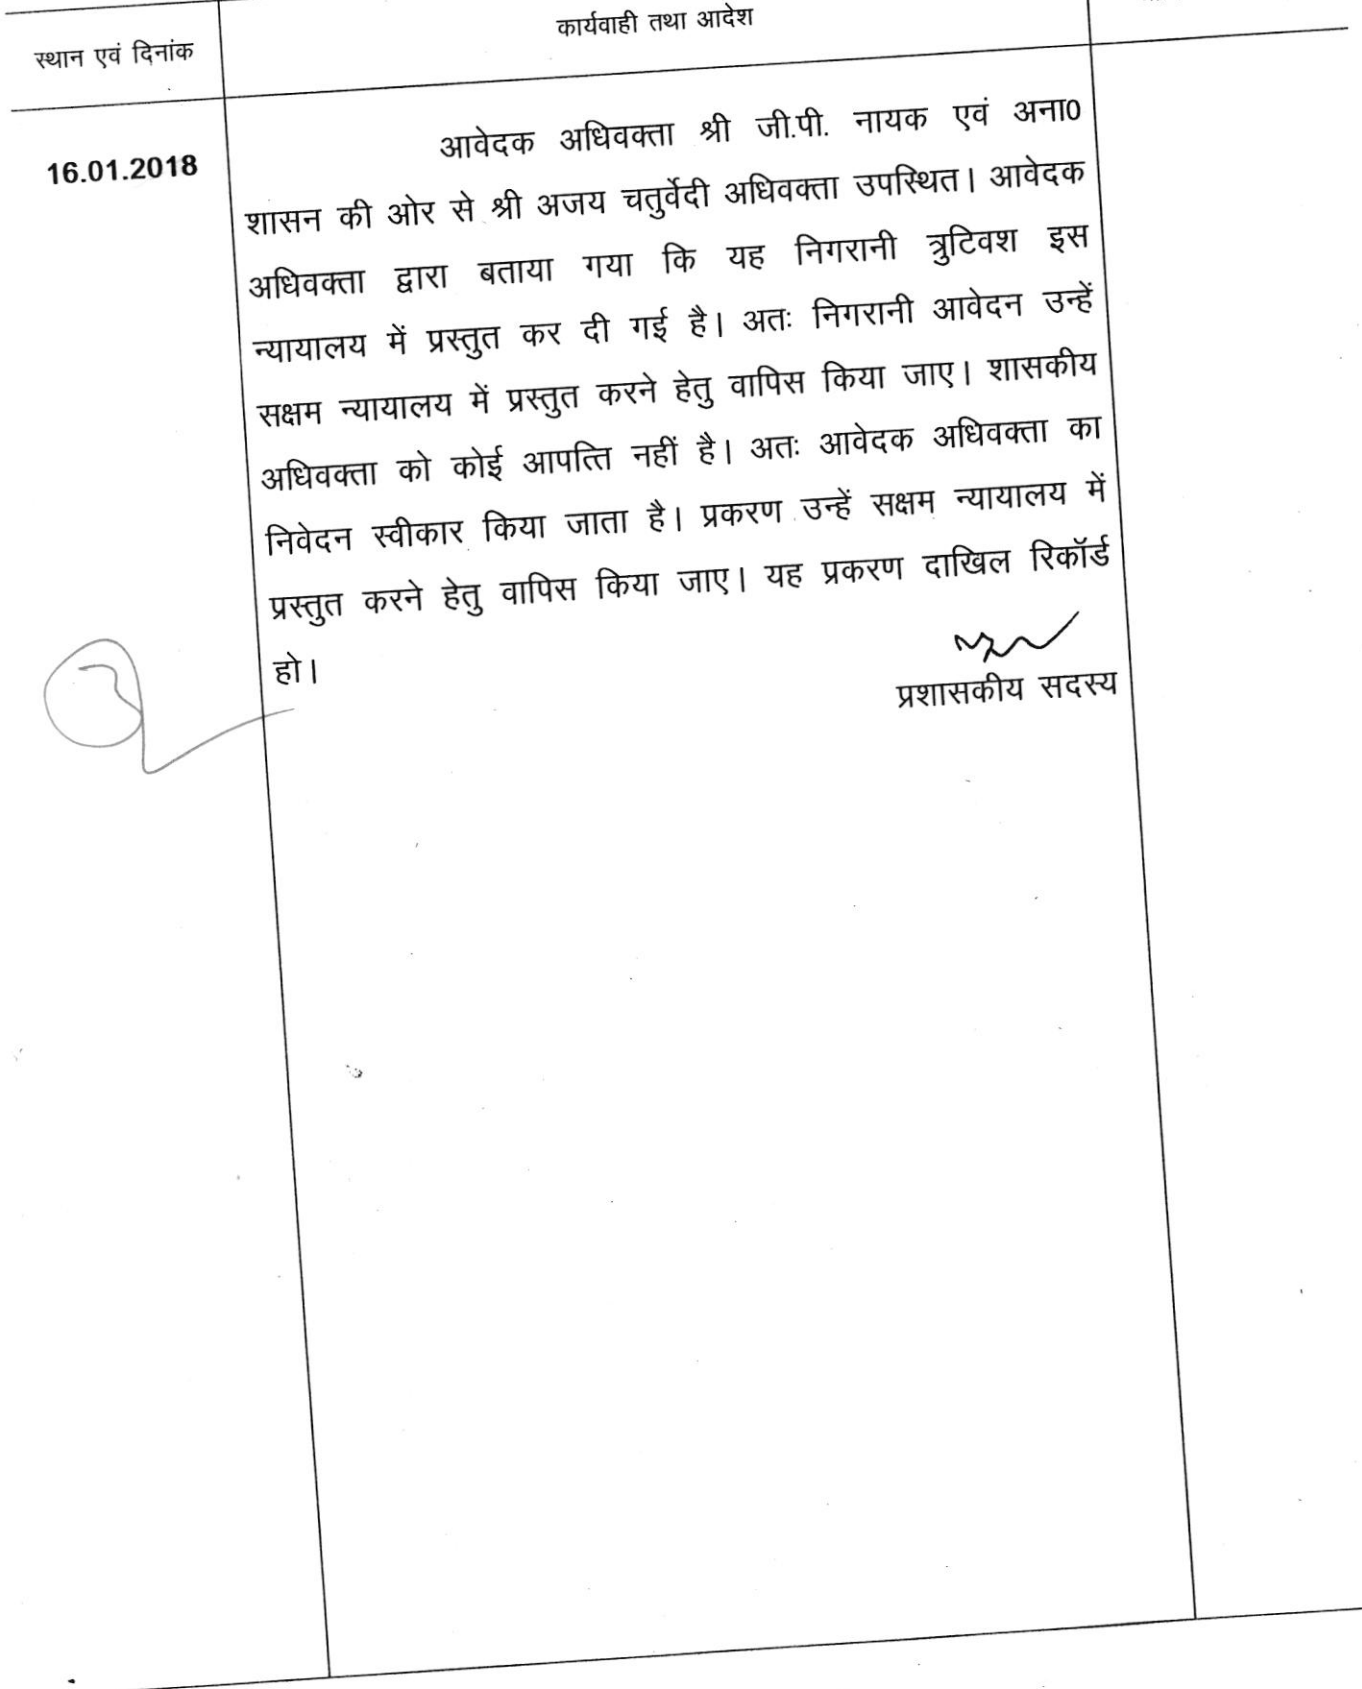 कार्यवाही तथा आदेश
स्थान एवं दिनांक
16.01.2018
आवेदक अधिवक्ता श्री जी.पी. नायक एवं अना0
शासन की ओर से श्री अजय चतुर्वेदी अधिवक्ता उपस्थित। आवेदक
अधिवक्ता द्वारा बताया गया कि यह निगरानी त्रुटिवश इस
न्यायालय में प्रस्तुत कर दी गई है। अतः निगरानी आवेदन उन्हें
सक्षम न्यायालय में प्रस्तुत करने हेतु वापिस किया जाए। शासकीय
अधिवक्ता को कोई आपत्ति नहीं है। अतः आवेदक अधिवक्ता का
निवेदन स्वीकार किया जाता है। प्रकरण उन्हें सक्षम न्यायालय में
प्रस्तुत करने हेतु वापिस किया जाए। यह प्रकरण दाखिल रिकॉर्ड
हो।
प्रशासकीय सदस्य